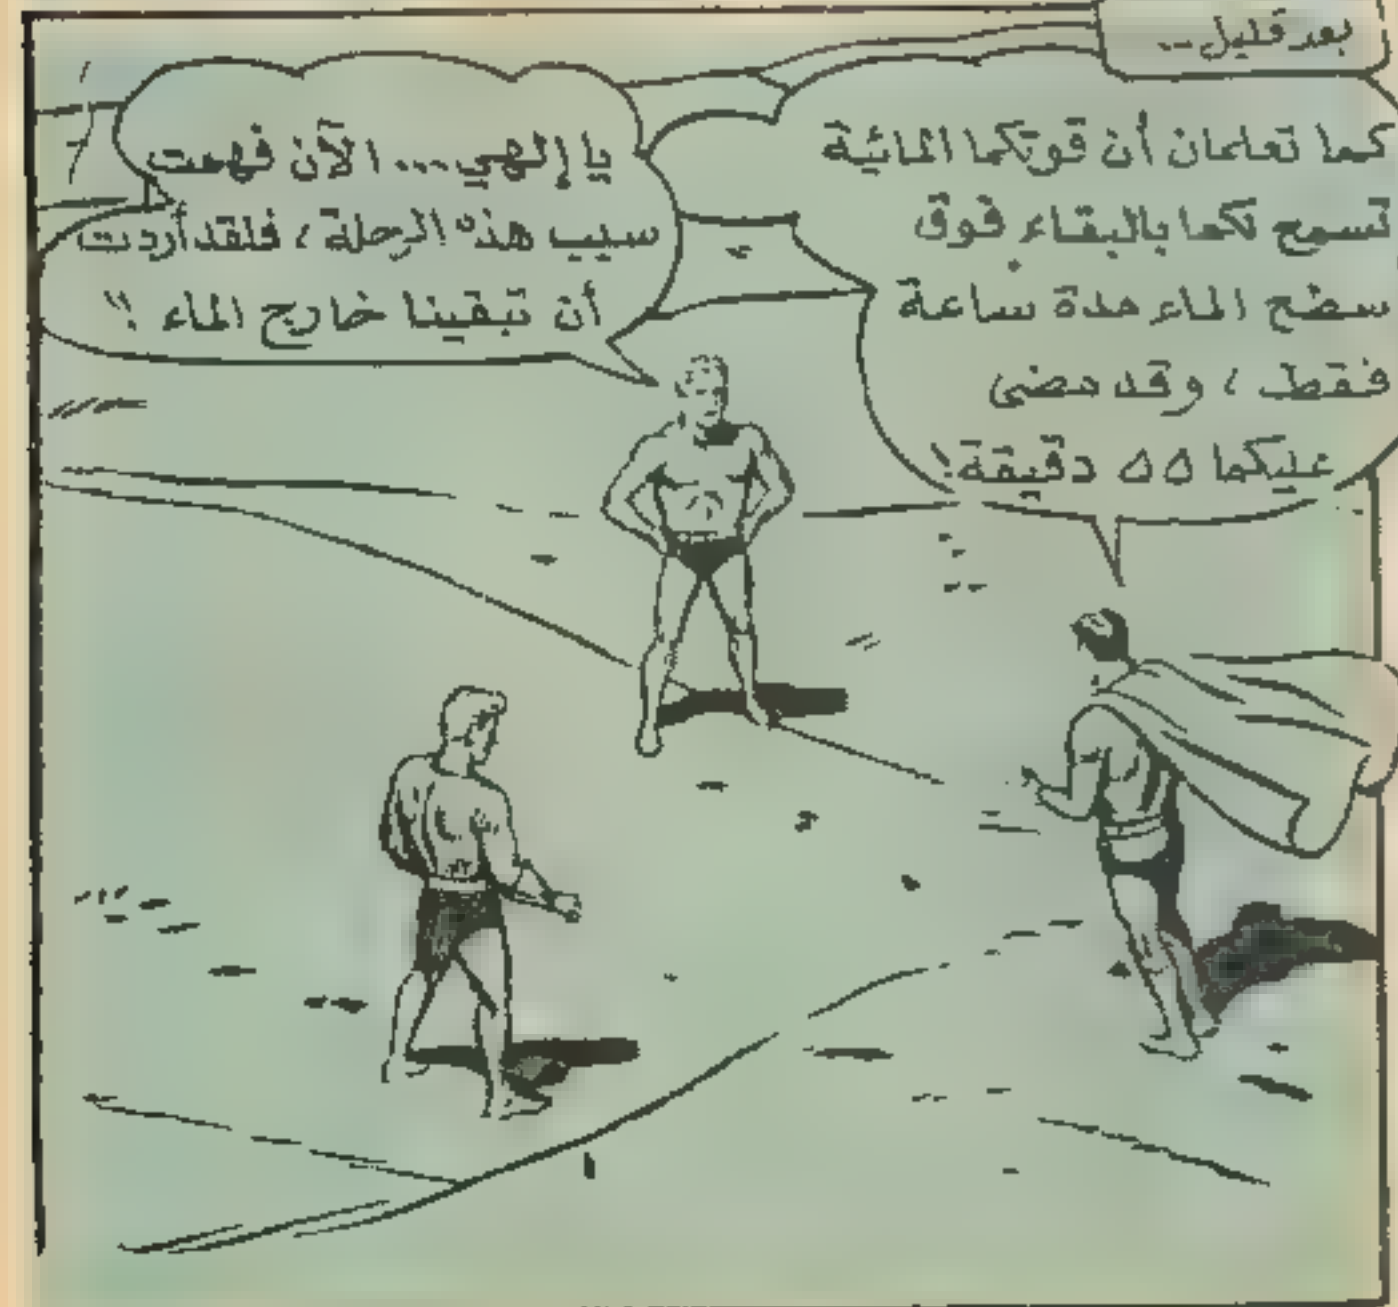 بعد قليل..
كما تعلمان أن قوتكما المائية
تسمح لكما بالبقاء فوق
سطح الماء مدة ساعة
فقط ، وقد مضى
عليكما ٥٥ دقيقة!
يا إلهي... الآن فهمت
سبب هذه الرحلة ، فلقد أردت
أن تبقينا خارج الماء !!